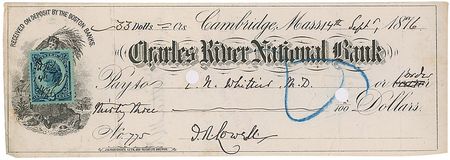 RECEIVED ON DEPOSIT BY THE BOSTON BANKS.
33 Dolls = Cts Cambridge, Mass. 14th Sept. 1876
Charles River National Bank
Pay to E. N. Whittier M.D. or order
Thirty three 100 Dollars.
No. 775 J. R. Lowell